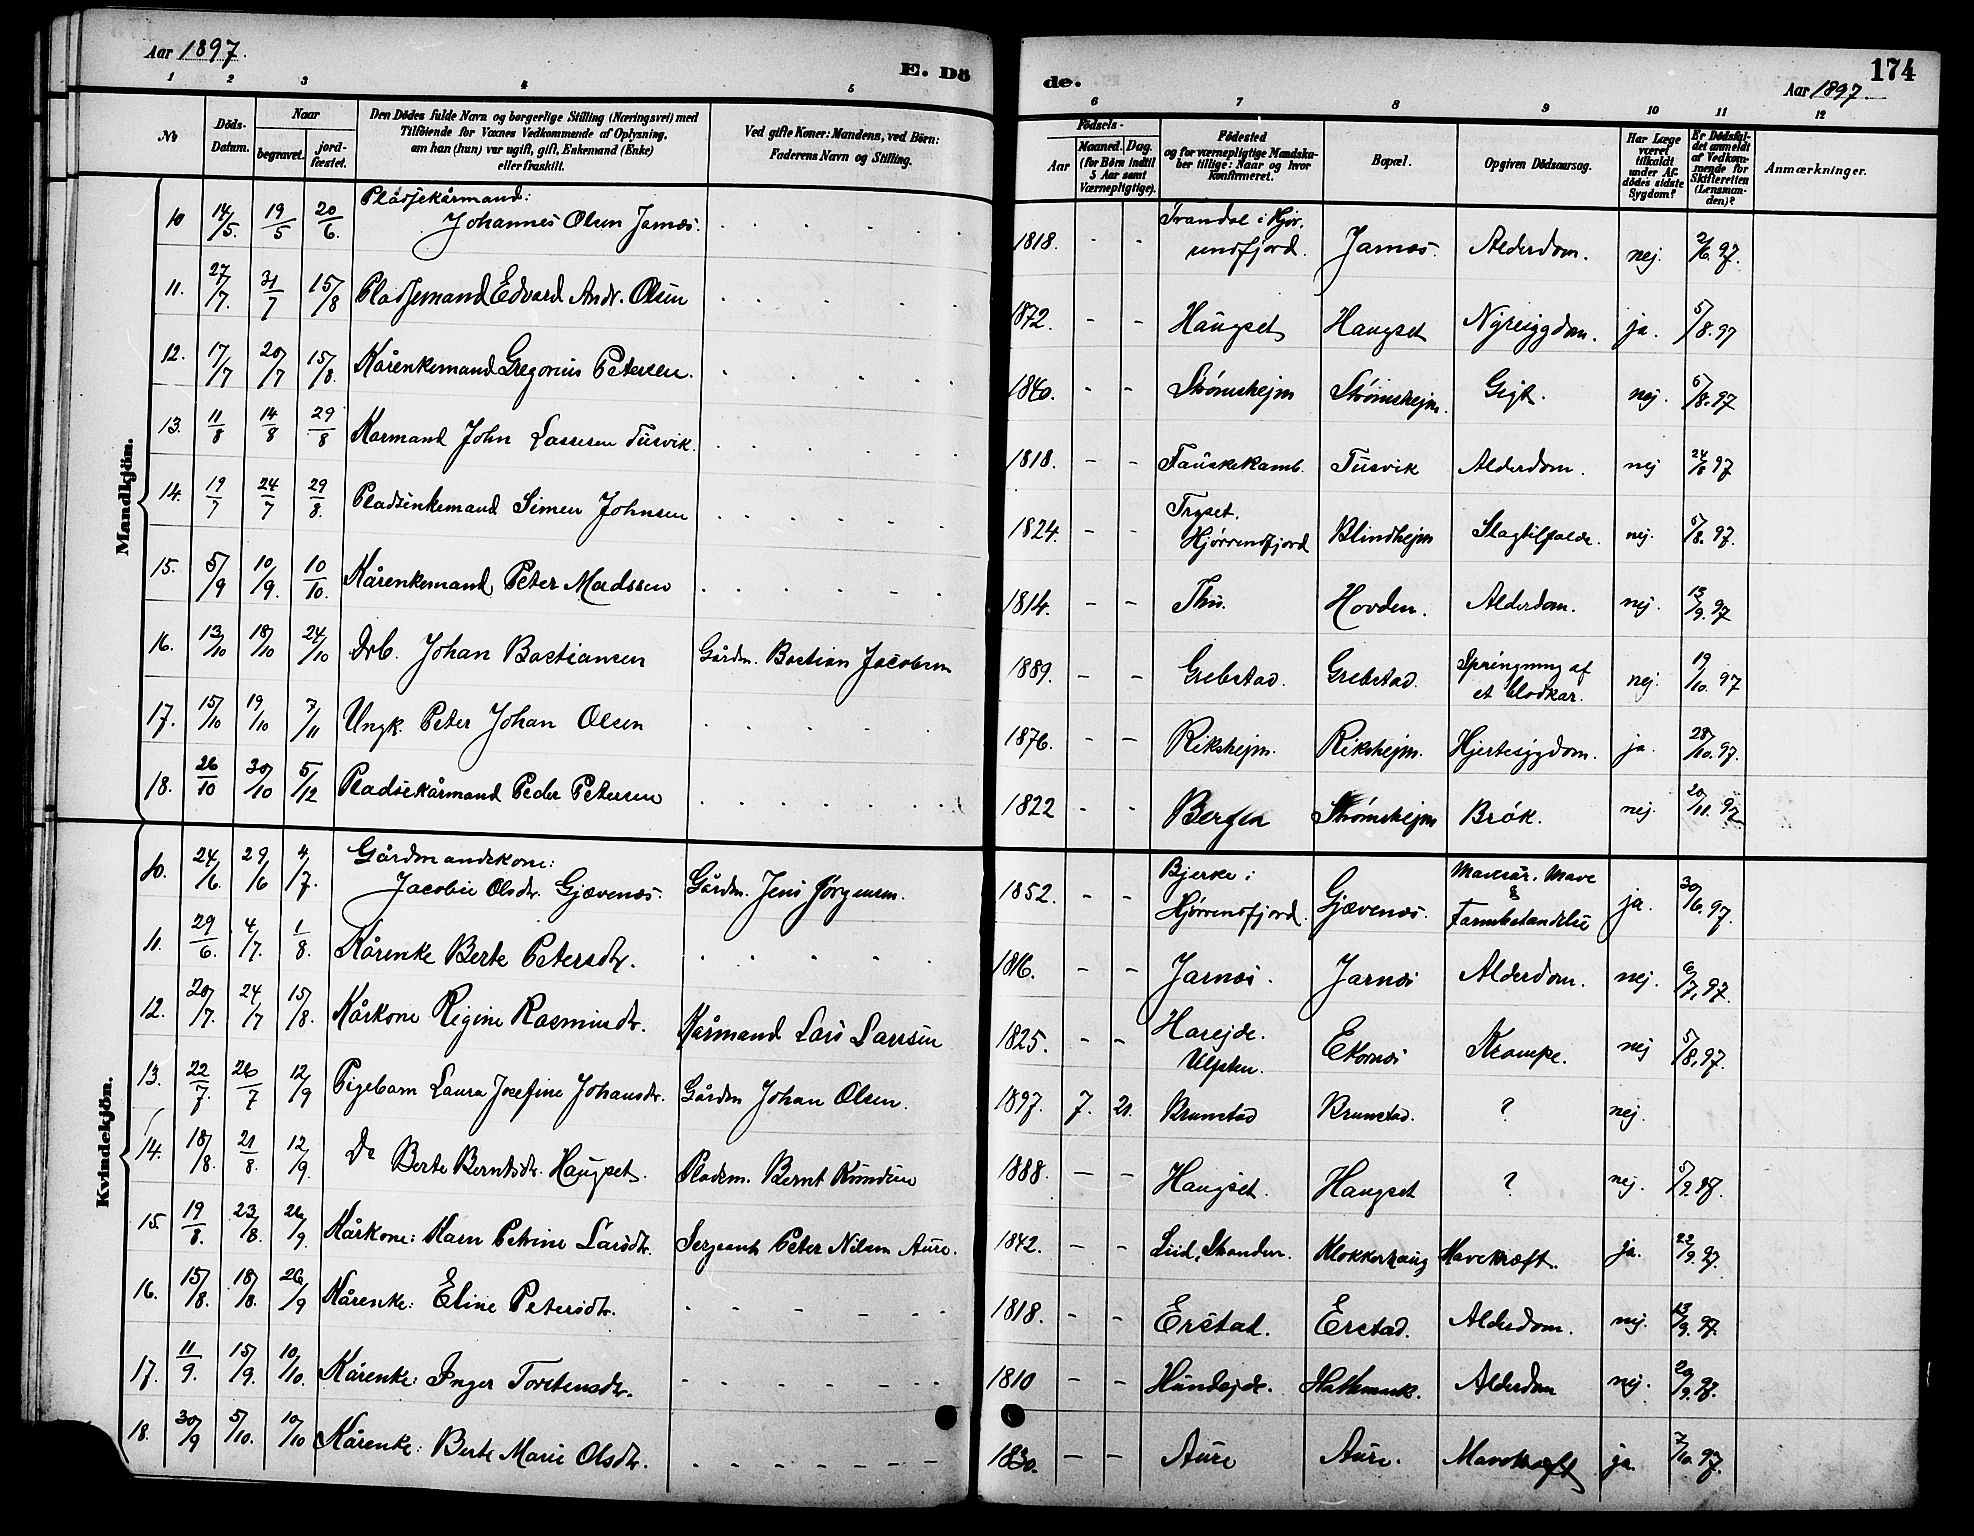 Aar 1897.
E. Dö
de.
174
Aar 1897.
1 2 3 4 5 6 7 8 9 10 11 12
No
Döds-
Datum.
Naar
begravet.
jord-
fæstet.
Den Dödes fulde Navn og borgerlige Stilling (Næringsvei) med
Tilföiende for Voxnes Vedkommende af Oplysning,
om han (hun) var ugift, gift, Enkemand (Enke)
eller fraskilt.
Ved gifte Koner: Mandens, ved Börn:
Faderens Navn og Stilling.
Födsels-
Aar
Maaned. Dag.
(for Börn indtil
5 Aar samt
Værnepligtige).
Födested
og for værnepligtige Mandska-
ber tillige: Naar og hvor
konfirmeret.
Bopæl.
Opgiven Dödsaarsag.
Har Læge
været
tilkaldt
under Af-
dödes sidste
Sygdom?
Er Dödsfal-
det anmeldt
af Vedkom-
mende for
Skifteretten
(Lensman-
den)?
Anmærkninger.
Mandkjön.
10 14/5. 19/5 20/6. Pladsekårmand:
Johannes Olsen Jarnæs. 1818. - - Trandal i Hjør.
undfjord. Jarnæs. Alderdom. nej. 2/6. 97.
11. 27/7. 31/7 15/8 Pladsemand Edvard Andr. Olsen 1872. - - Haugset Haugset Nyresygdom. ja. 5/8. 97
12. 17/7 20/7 15/8. Kårenkemand Gregorius Petersen. 1840. - - Strømshejm Strømshejm. Gigt. nej. 5/8. 97
13. 11/8 14/8 29/8 Karmand John Lassesen Tusvik. 1818. - - Fauskekamb. Tusvik Alderdom. nej 24/8 97
14. 19/7 24/7 29/8. Pladsenkemand Simen Johnsen 1824. - - Tryset.
Hjørrendfjord Blindhejm Slagtilfælde. nej. 5/8. 97.
15. 5/9 10/9. 10/10. Kårenkemand Peter Madssen 1814. - - Thu. Hovden. Alderdom. nej. 13/9. 97
16. 13/10 18/10 24/10 Drb. Johan Bastiansen Gårdm. Bastian Jacobsen 1889. - - Grebstad. Grebstad. Springning af
et blodkar. nej. 19/10. 97
17. 15/10 19/10 7/11 Ungk. Peter Johan Olsen 1876. - - Rikshejm. Rikshejm. Hjertesygdom. ja. 28/10. 97.
18. 26/10 30/10 5/12 Pladsekårmand Peder Petersen 1822 - - Bergen Strømshejm Brok. nej. 20/11. 97
Kvindekjön.
10. 24/6. 29/6 4/7. Gårdmandskone:
Jacobie Olsdtr. Gjævenæs. Gårdm. Jens Jørgensen. 1852. - - Bjerke i
Hjørrendfjord. Gjævenæs. Mavesår. Mave
&
Tarmbetændelse ja. 30/6. 97.
11. 29/6. 4/7. 1/8. Kårenke Berte Petersdtr. 1816. - - Jarnæs. Jarnæs Alderdom. nej. 6/7. 97.
12. 20/7. 24/7 15/8. Kårkone Regine Rasmusdtr. Kårmand Lars Larsen 1825. - - Harejde.
Ulfsten. Ekornæs Krampe. nej 5/8. 97.
13. 22/7. 26/7 12/9 Pigebarn Laura Josefine Johansdtr. Gårdm Johan Olsen. 1897. 7. 21. Brunstad Brunstad. ? nej.
14. 18/8. 21/8. 12/9. Do Berte Berntsdtr. Haugset. Pladsm. Bernt Knudsen 1888. - - Haugset. Haugset ? nej. 5/9. 97.
15. 19/8. 23/8. 26/9. Kårkone: Karn Petrine Larsdtr. Sergeant Peter Nilsen Aure. 1842. - - Lid, Stranden. Klokkerhaug Mavekræft. ja. 22/9. 97.
16. 15/8. 18/8. 26/9 Kårenke: Eline Petersdtr. 1818. - - Erstad. Erstad. Alderdom. nej. 13/9. 97.
17. 11/9. 15/9. 10/10. Kårenke: Inger Torstensdtr. 1810 - - Hundejde. Hatlemark. Alderdom nej. 20/9. 97.
18. 30/9 5/10. 10/10 Kårenke: Berte Marie Olsdtr. 1830. - - Aure Aure. Mavekræft ja. 7/10. 97.